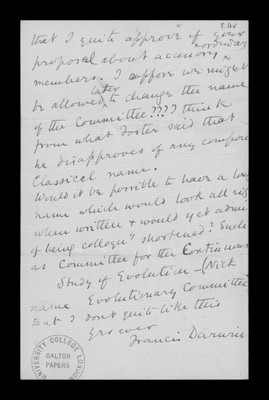 that I quite approve of your
proposal about accessory
members. I suppose we might
later
be allowed to change the name
of the Committee???? I think
from what Foster said that
he disapproves of any compound
Classical name.
Would it be possible to have a long
name which would look all right
when written & would yet admit
of being colloqly shortened? Such
as Committee for the Continuous
Study of Evolution — (Nick
name Evolutionary Committee)
But I don't quite like this
yrs ever
Francis Darwin
UNIVERSITY COLLEGE LONDON
GALTON
PAPERS